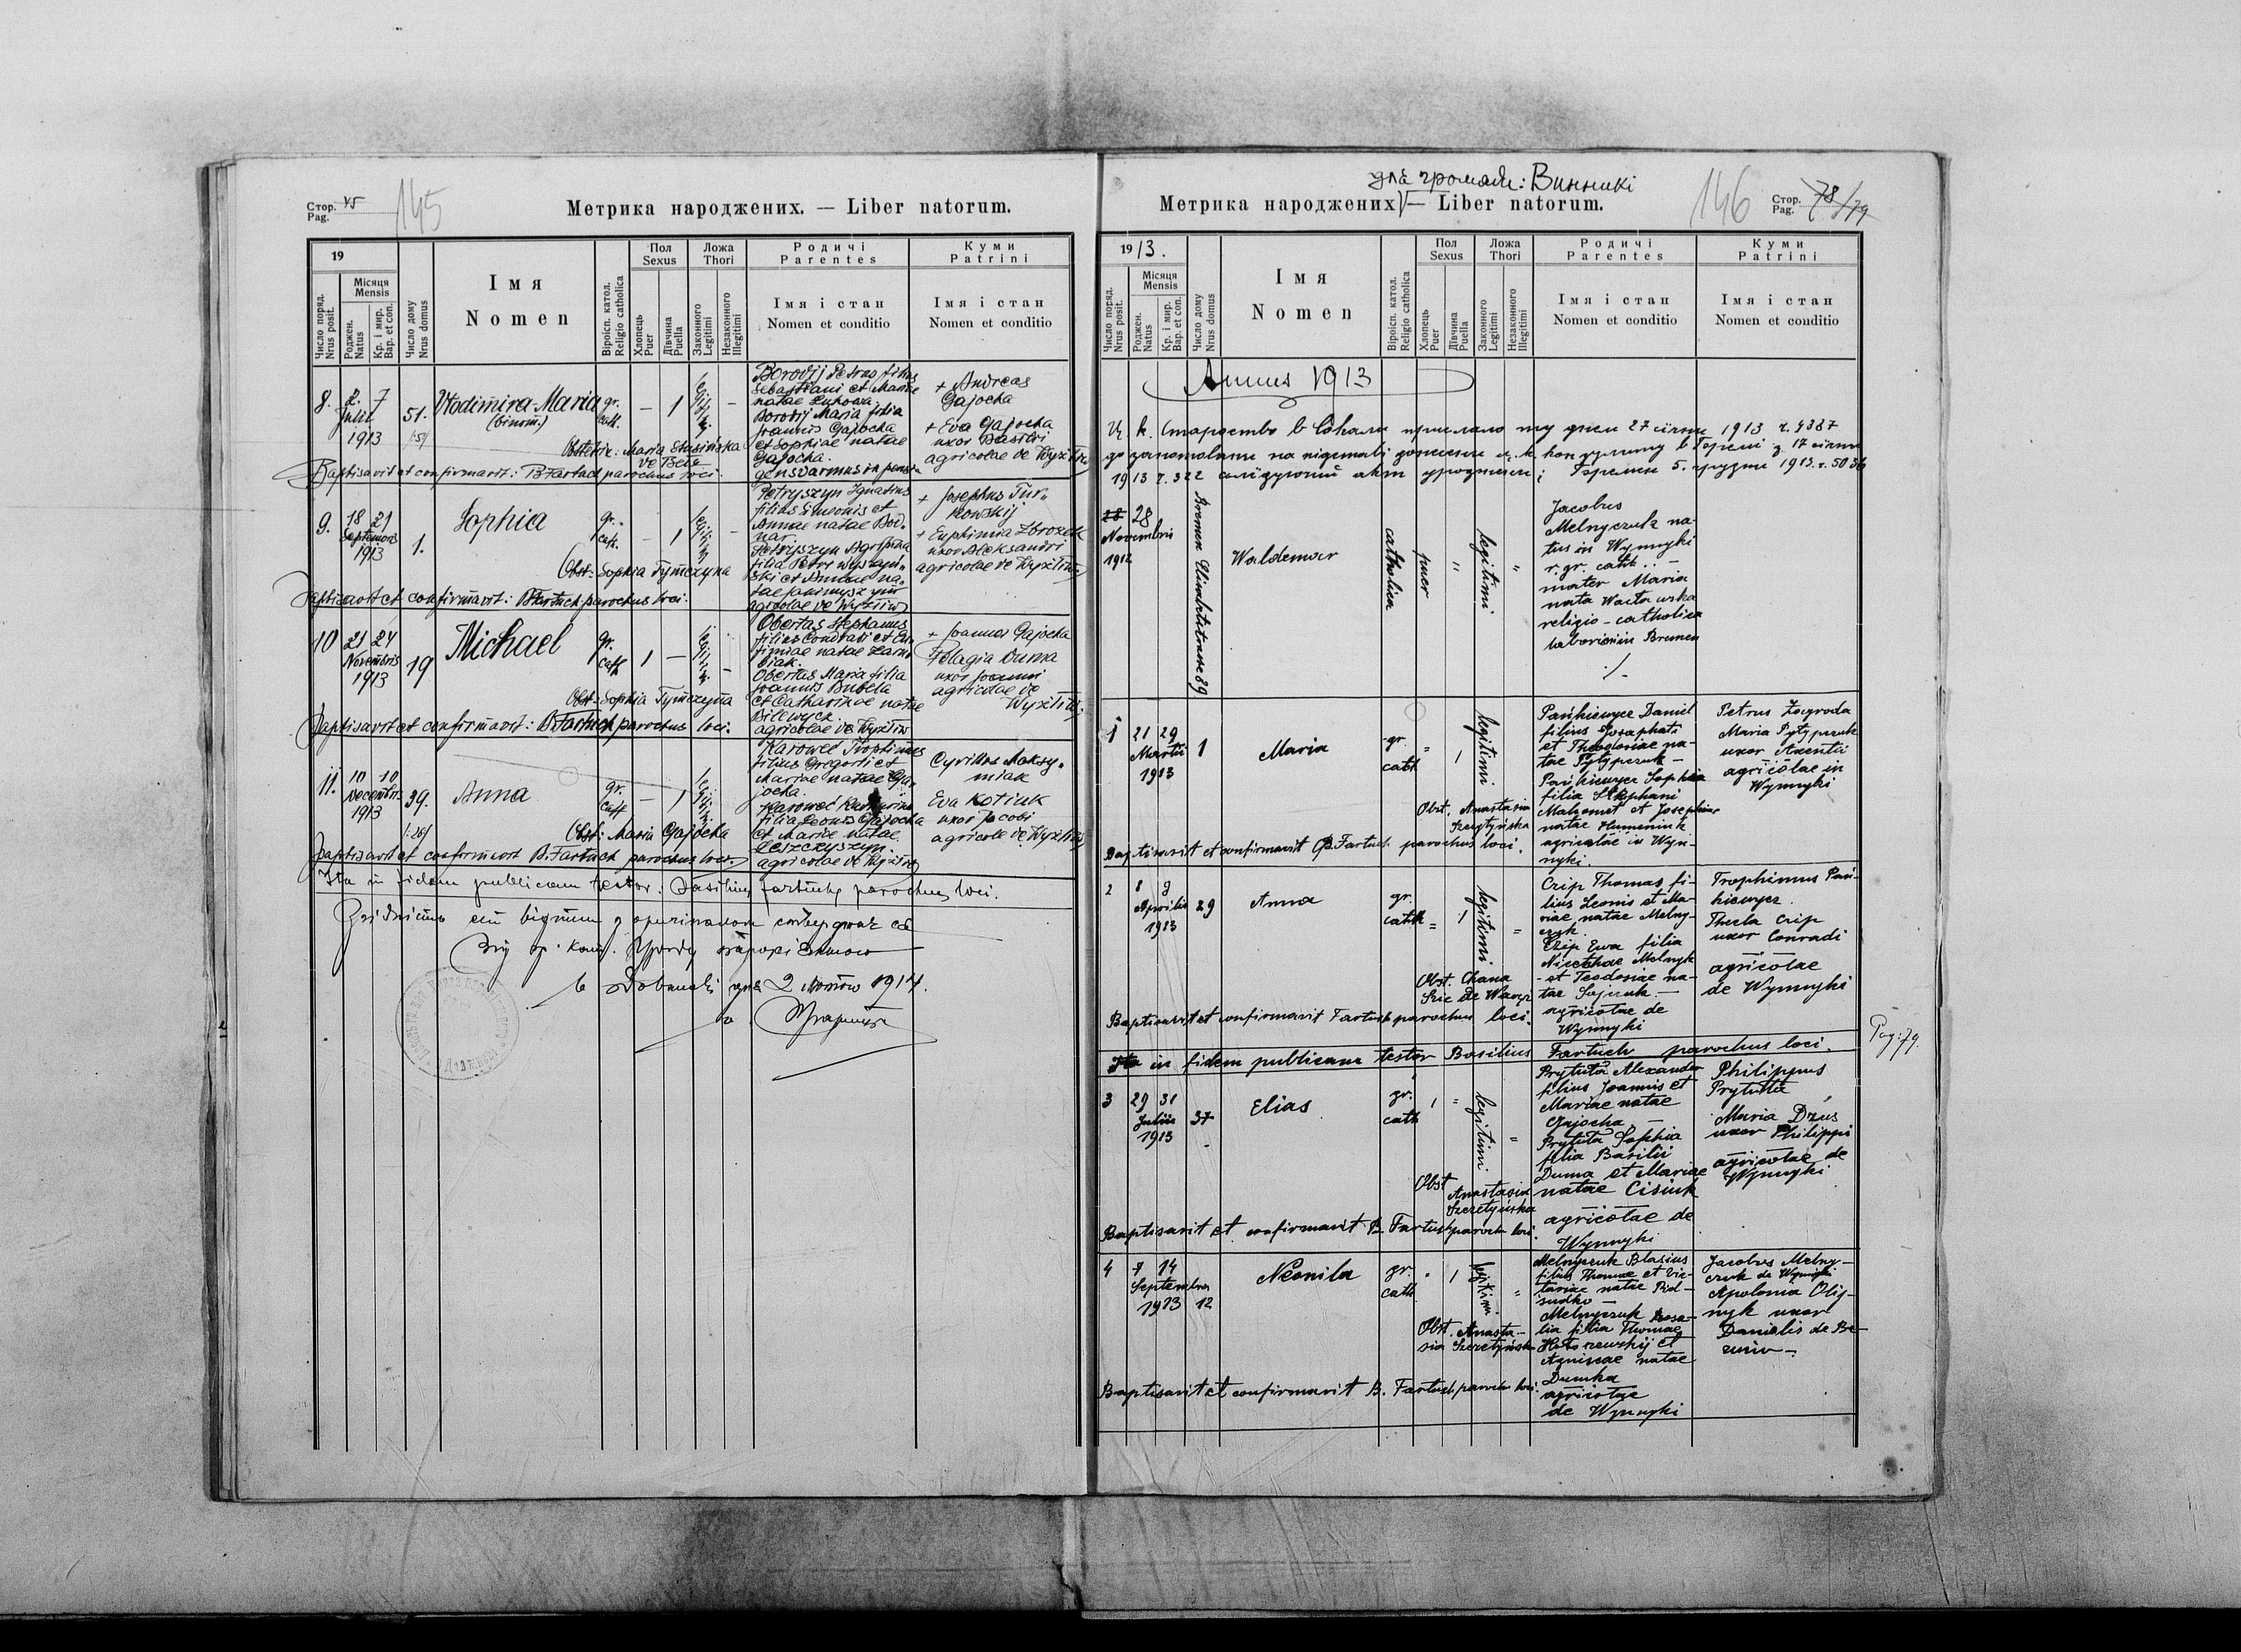 Стор. 45
Pag.
145
Метрика народжених. — Liber natorum.
19
Число поряд.
Nrus posit.
Місяця
Mensis
Роджен.
Natus
Кр. і мир.
Bap. et con.
Число дому
Nrus domus
Імя
Nomen
Віроісп. катол.
Religio catholica
Пол
Sexus
Хлопець
Puer
Дївчина
Puella
Ложа
Thori
Законного
Legitimi
Незаконного
Illegitimi
Родичі
Parentes
Імя і стан
Nomen et conditio
Куми
Patrini
Імя і стан
Nomen et conditio
8. 2. 7
Julii
1913
51.
Wlodimira-Maria
(binom.)
gr.
cath.
— 1
Borodij Petrus filius
Sebastiani et Mariae
natae Zukowa.
Borodij Maria filia
Joannis Gajocha
et Sophiae natae
Gajocha.
+ Andreas
Gajocha
+ Eva Gajocha
uxor Basilii
agricolae de Wyżłów
Obstetric. Maria
de Bełz
Baptisavit et confirmavit: B Fartuch parochus loci.
9. 18 21
Septembris
1913
1.
Sophia
gr.
cath.
— 1 —
Petryszyn Ignatius
filius Simeonis et
Annae natae Bod-
nar.
Petryszyn Agripina
filia Petri Wyszyń-
ski et Annae na-
tae
agricolae de Wyżłów
+ Josephus Tur-
kowskij
+ Euphimia Zbrożek
uxor Aleksandri
agricolae de Wyżłów
Obst: Sophia Tymczyna
Baptisavit et confirmavit: B Fartuch parochus loci.
10 21 24
Novembris
1913
19
Michael
gr.
cath
1 — —
Obertas Stephanus
filius Condrati et Eu-
fimiae natae
Obertas Maria filia
Joannis Bubela
et Catharinae natae
agricolae de Wyżłów
+ Joannes Gajocha
Pelagia Duma
uxor Joanni
agricolae de
Wyżłów
Obst: Sophia Tymczyna
Baptisavit et confirmavit: B. Fartuch parochus loci.
11. 10 10
Decembris
1913
39.
Anna
gr.
cath
— 1
Karoweć Trophimus
filius Gregorii et
Mariae natae Ga-
jocha.
Karoweć
filia Leonis Gajocha
et Mariae natae
Leszczyszyn.
agricolae de Wyżłów
Cyrillus Maksy-
miak
Eva Kotiuk
uxor Jacobi
agricolae de Wyżłów
Obst: Maria Gajocha
Baptisavit et confirmavit B. Fartuch parochus loci.
Ita in fidem publicam testor: Basilius Fartuch parochus loci.
Згідність сего відпису з оригіналом стверджає ся
Від гр. кат. Уряду парохіяльного
в дня 2 1914.
для громади: Винники
Метрика народжених — Liber natorum.
146
Стор. 78/79
Pag.
1913.
Число поряд.
Nrus posit.
Місяця
Mensis
Роджен.
Natus
Кр. і мир.
Bap. et con.
Число дому
Nrus domus
Імя
Nomen
Віроісп. катол.
Religio catholica
Пол
Sexus
Хлопець
Puer
Дївчина
Puella
Ложа
Thori
Законного
Legitimi
Незаконного
Illegitimi
Родичі
Parentes
Імя і стан
Nomen et conditio
Куми
Patrini
Імя і стан
Nomen et conditio
Annus 1913
Ц. к. Староство в Сокали прислало ту днем 27 січня 1913 ч. 4387
до занотованя на підставі ц. к. в з 17 січня
1913 ч. 322 слідуючий акт уродженя; Бремен 5. грудня 1913. ч. 5036
28
Novembris
1912
Bremen 89
Waldemar
catholica
puer
"
legitimi
"
Jacobus
Melnyczuk na-
tus in Wynnyki
r. gr. cath. —
mater Maria
nata
religio-catholica
in Bremen
1 21 29
Martii
1913
1
Maria
gr.
cath
" 1
legitimi
Pańkiewycz Daniel
filius Josaphati
et Theodosiae na-
tae Pylypczuk —
Pańkiewycz Sophia
filia Stephani
Mahomet et Josephinae
natae Humeniuk
agricolae in Wyn-
nyki.
Petrus Zagroda
Maria Pylypczuk
uxor Axentii
agricolae in
Wynnyki
Obst. Anastasia
Szeretyńska
Baptisavit et confirmavit B. Fartuch parochus loci.
2 8 9
Aprilis
1913
29
Anna
gr.
cath
= 1
legitimi
=
Czip Thomas fi-
lius Leonis et Ma-
riae natae Melny-
czyk.
Czip Ewa filia
Nicethae Melnyk
et Teodosiae na-
tae —
agricolae de
Wynnyki
Trophimus Pań-
kiewycz.
Thecla Czip
uxor Conradi
agricolae
de Wynnyki
Obst. Chana
de
Baptisavit et confirmavit Fartuch parochus loci.
Ita in fidem publicam testor Basilius Fartuch parochus loci.
Pag: 79.
3 29 31
Julii
1913
37
Elias
gr.
cath
1 "
legitimi
=
Prytuła Alexander
filius Joannis et
Mariae natae
Gajocha —
Prytuła Sophia
filia Basilii
Duma et Mariae
natae Cisiuk
agricolae de
Wynnyki
Philippus
Prytuła
Maria Dzus
uxor Philippi
agricolae de
Wynnyki
Obst
Anastasia
Szeretyńska
Baptisavit et confirmavit B. Fartuch paroch loci.
4 7 14
Septembris
1913 12
Neonila
gr.
cath
" 1
legitimi
"
Melnyczuk Blasius
filius Thomae et Vic-
toriae natae Pid-
sudko —
Melnyczuk Rosa-
lia filia Thomae
et
Agniscae natae
Dumka
agricolae
de Wynnyki
Jacobus Melny-
czuk de Wynnyki
Apolonia Olij-
nyk uxor
Danielis de
Obst. Anasta-
sia Szeretyńska
Baptisavit et confirmavit B. Fartuch paroch loci.